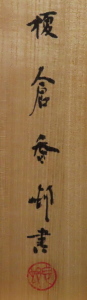 榎倉香邨書